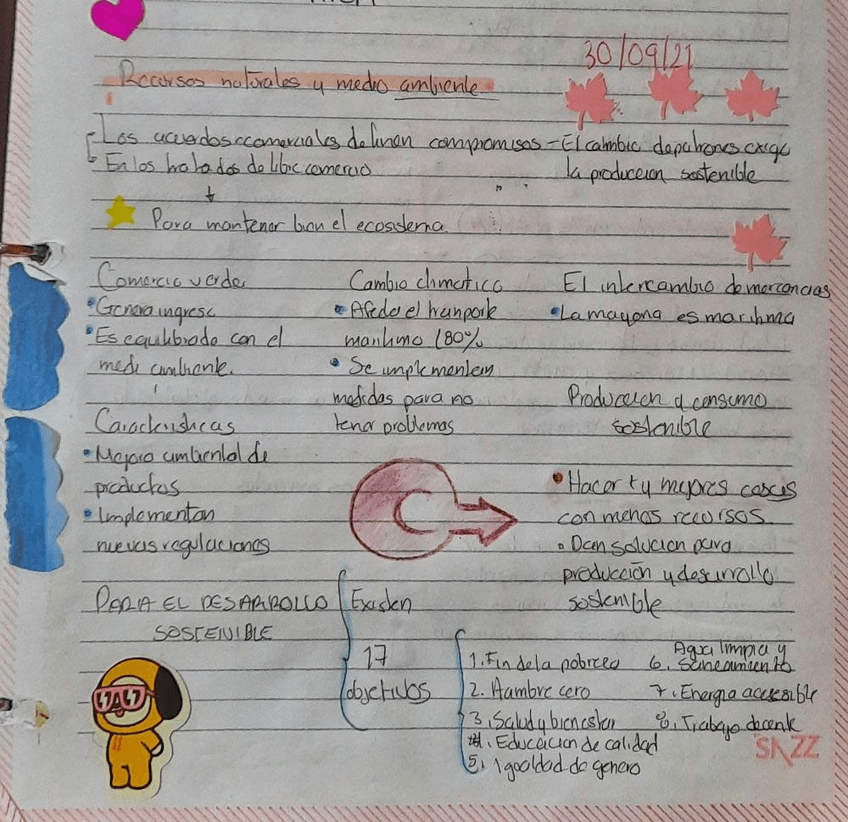 30/09/21
Recursos naturales y medio ambiente
Los acuerdos comerciales definen compromisos - El cambio de patrones exige
En los tratados de libre comercio la produccion sostenible
Para mantener bien el ecosistema.
Comercio verde
• Genera ingreso
• Es equilibrado con el
medi ambiente.
Caracteristicas
• Mejora ambiental de
productos
• Implementan
nuevas regulaciones
Cambio climatico
• Afecta el transporte
maritimo (80%
• Se implementan
medidas para no
tener problemas
El intercambio de mercancias
• La mayoria es maritima
Produccion y consumo
sostenible
• Hacer + y mejores cosas
con menos recursos.
• Dan solucion para
producción y desarrollo
sostenible
PARA EL DESARROLLO
SOSTENIBLE
Existen
17
objetivos
1. Fin de la pobreza
2. Hambre cero
3. Salud y bienestar
4. Educacion de calidad
5. Igualdad de genero
6. Agua limpia y
saneamiento
7. Energia accesible
8. Trabajo decente
SAZZ